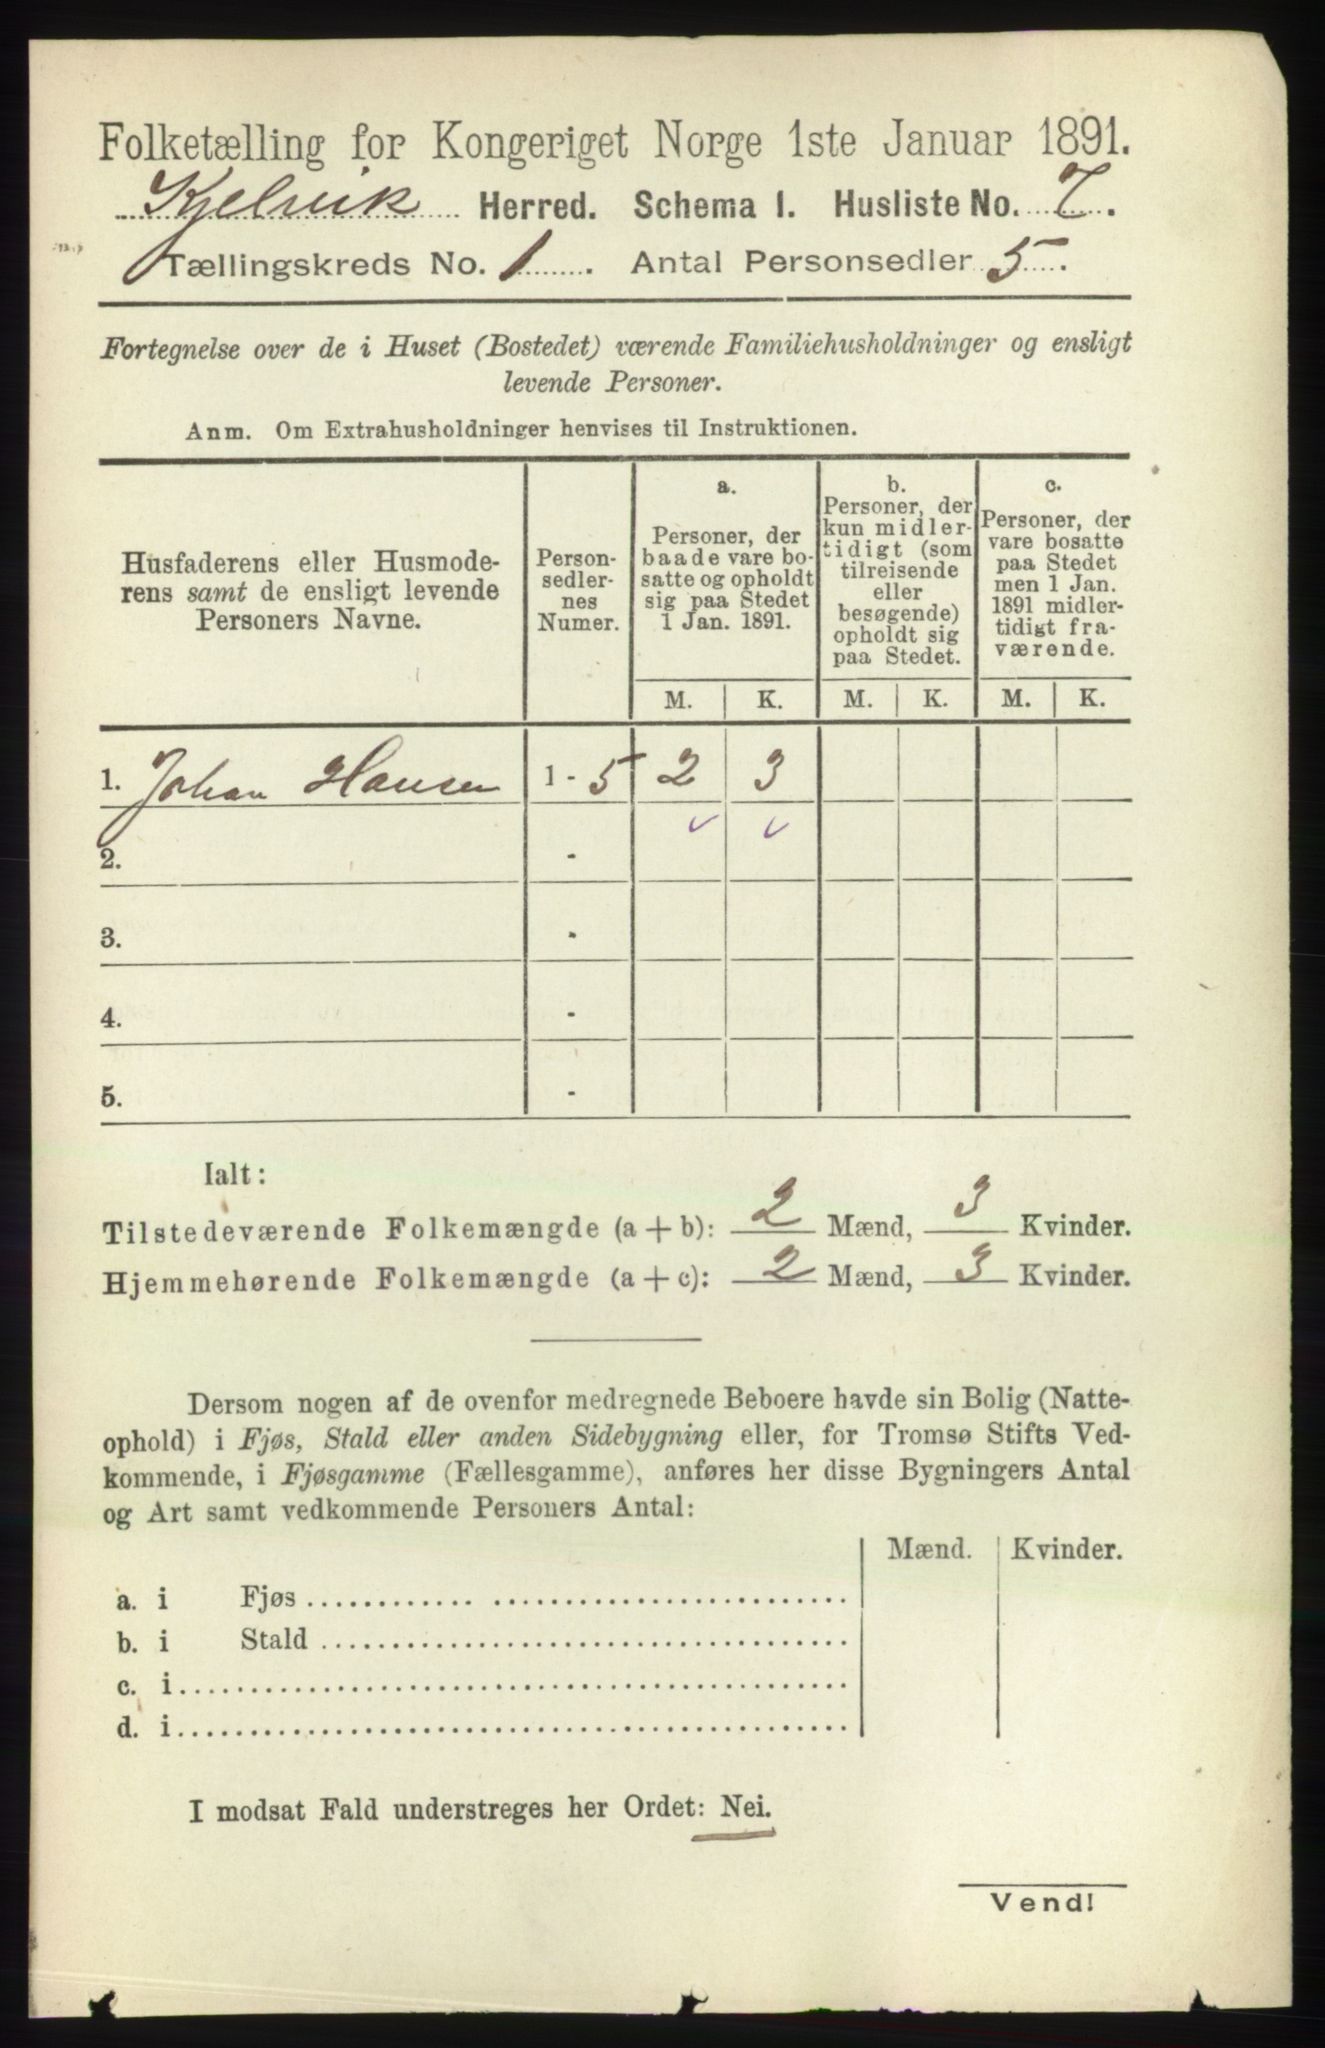 Folketælling for Kongeriget Norge 1ste Januar 1891.
Kjelvik Herred. Schema 1. Husliste No. 7.
Tællingskreds No. 1. Antal Personsedler 5.
Fortegnelse over de i Huset (Bostedet) værende Familiehusholdninger og ensligt
levende Personer.
Anm. Om Extrahusholdninger henvises til Instruktionen.
Husfaderens eller Husmode-
rens samt de ensligt levende
Personers Navne.
Person-
sedler-
nes
Numer.
a.
Personer, der
baade vare bo-
satte og opholdt
sig paa Stedet
1 Jan. 1891.
b.
Personer, der
kun midler-
tidigt (som
tilreisende
eller
besøgende)
opholdt sig
paa Stedet.
c.
Personer, der
vare bosatte
paa Stedet
men 1 Jan.
1891 midler-
tidigt fra-
værende.
M. K. M. K. M. K.
1. Johan Hansen 1 - 5 2 3
2. -
3. -
4. -
5. -
Ialt:
Tilstedeværende Folkemængde (a + b): 2 Mænd, 3 Kvinder.
Hjemmehørende Folkemængde (a + c): 2 Mænd, 3 Kvinder.
Dersom nogen af de ovenfor medregnede Beboere havde sin Bolig (Natte-
ophold) i Fjøs, Stald eller anden Sidebygning eller, for Tromsø Stifts Ved-
kommende, i Fjøsgamme (Fællesgamme), anføres her disse Bygningers Antal
og Art samt vedkommende Personers Antal:
Mænd. Kvinder.
a. i Fjøs
b. i Stald
c. i
d. i
I modsat Fald understreges her Ordet: Nei.
Vend!